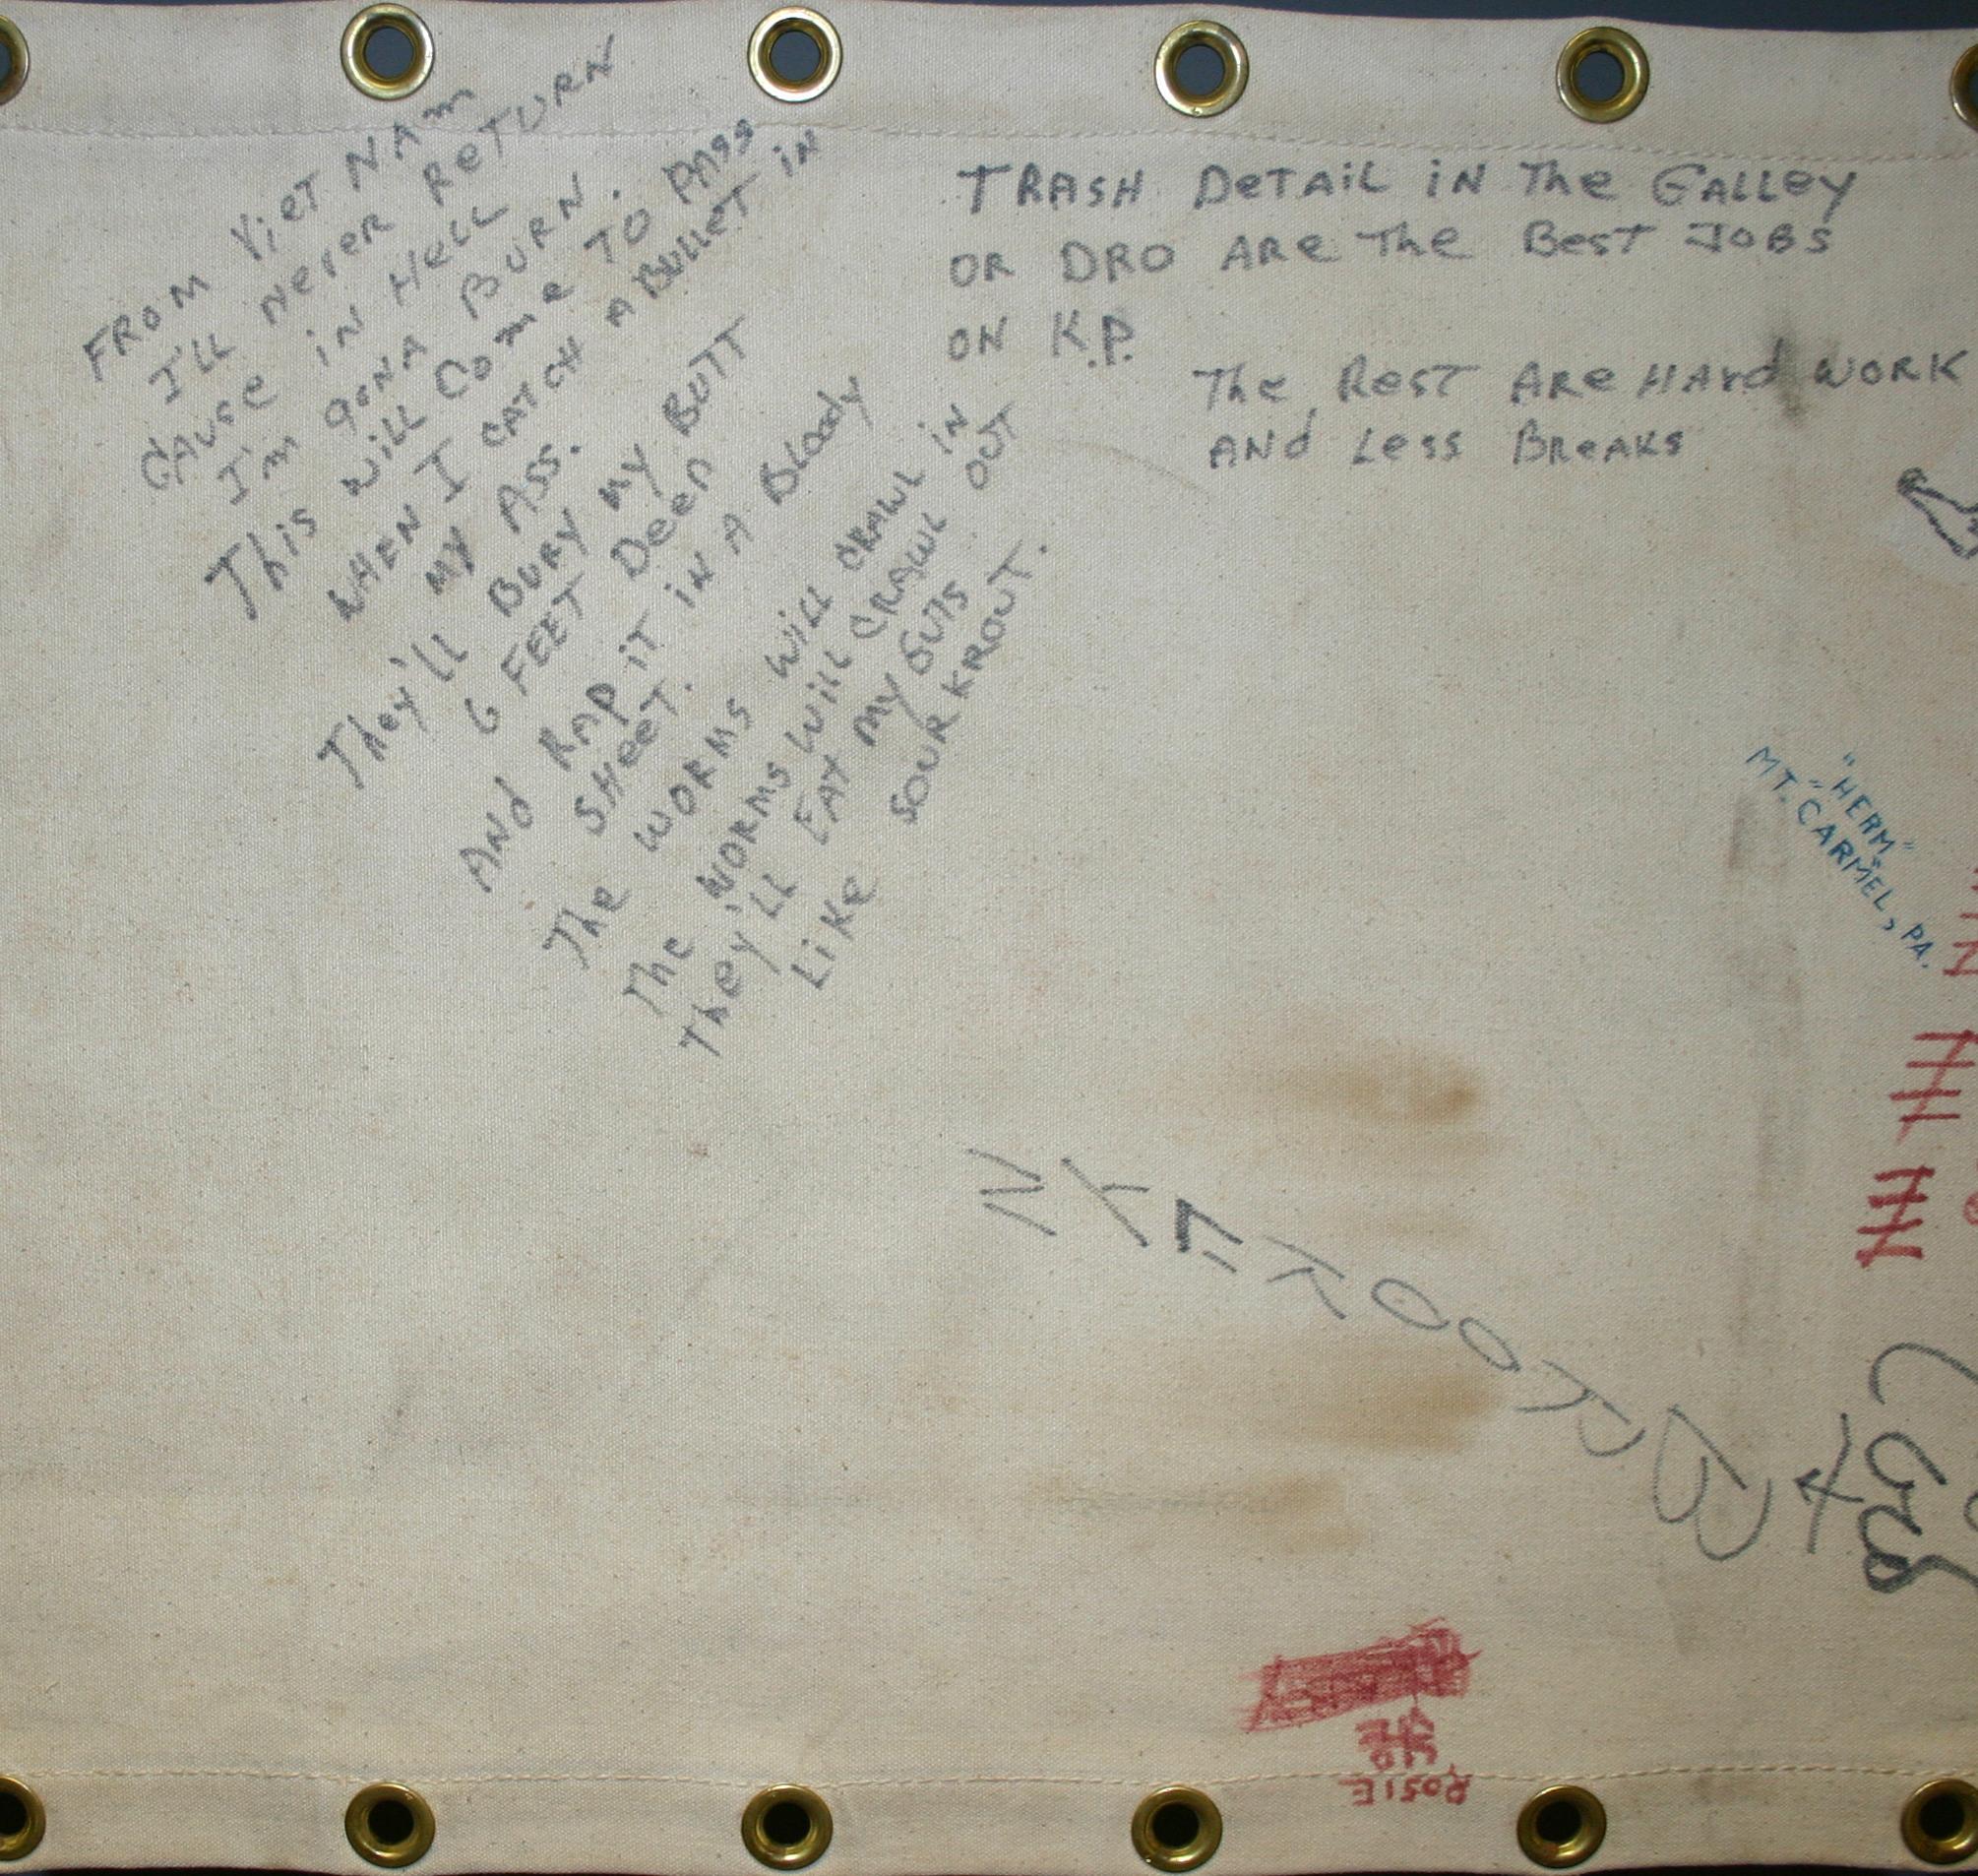 FROM VIET NAM
I'LL NEVER RETURN
CAUSE IN HELL
I'M GONA BURN.
THIS WILL COME TO PASS
WHEN I CATCH A BULLET IN
MY ASS.
THEY'LL BURY MY BUTT
6 FEET DEEP
AND RAP IT IN A BLOODY
SHEET.
THE WORMS WILL CRAWL IN
THE WORMS WILL CRAWL OUT
THEY'LL EAT MY GUTS
LIKE SOUR KROUT.
TRASH DETAIL IN THE GALLEY
OR DRO ARE THE BEST JOBS
ON K.P.
THE REST ARE HARD WORK
AND LESS BREAKS
"HERM"
MT. "CARMEL", PA.
ROSIE